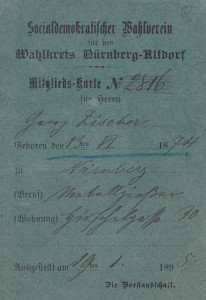 Socialdemokratischer Wahlverein
für den
Wahlkreis Nürnberg-Altdorf
Mitglieds-Karte № 2816
für Herrn
Georg Fischer
Geboren den 13ten VI 1874
zu Nürnberg
(Beruf) Metallgießer
(Wohnung) 10
Ausgestellt am 19/ 1. 1895.
Die Vorstandschaft.